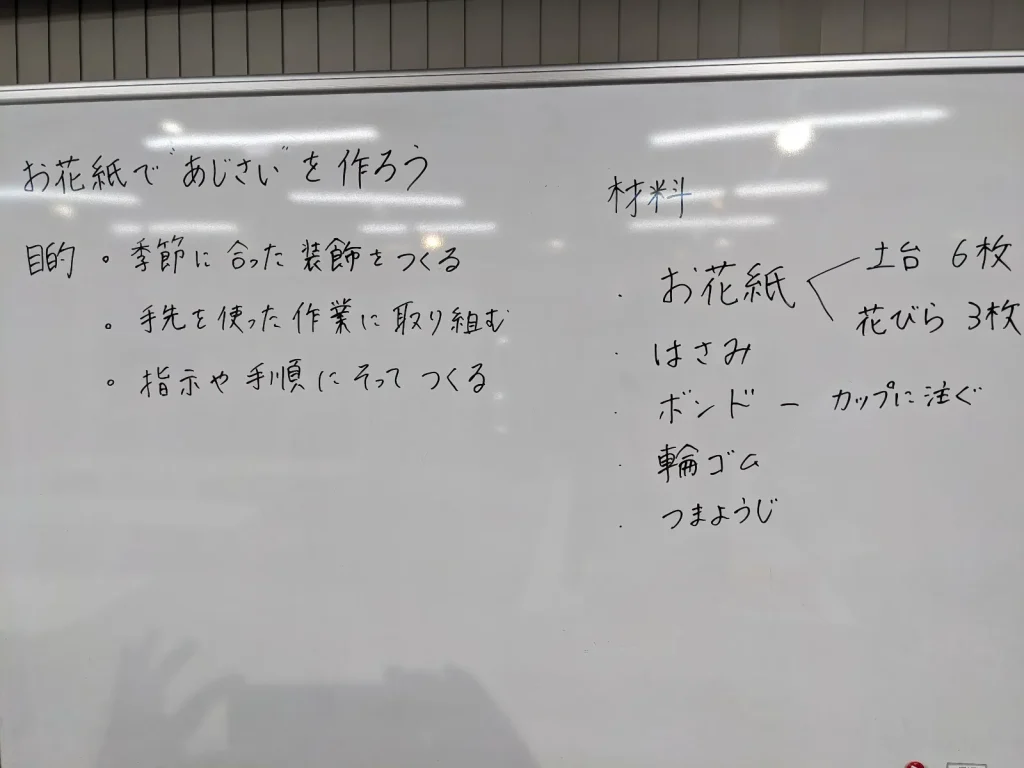 お花紙で"あじさい"を作ろう
目的 。季節に合った装飾をつくる
。手先を使った作業に取り組む
。指示や手順にそってつくる
材料
・お花紙 土台 6枚
花びら 3枚
・はさみ
・ボンド － カップに注ぐ
・輪ゴム
・つまようじ